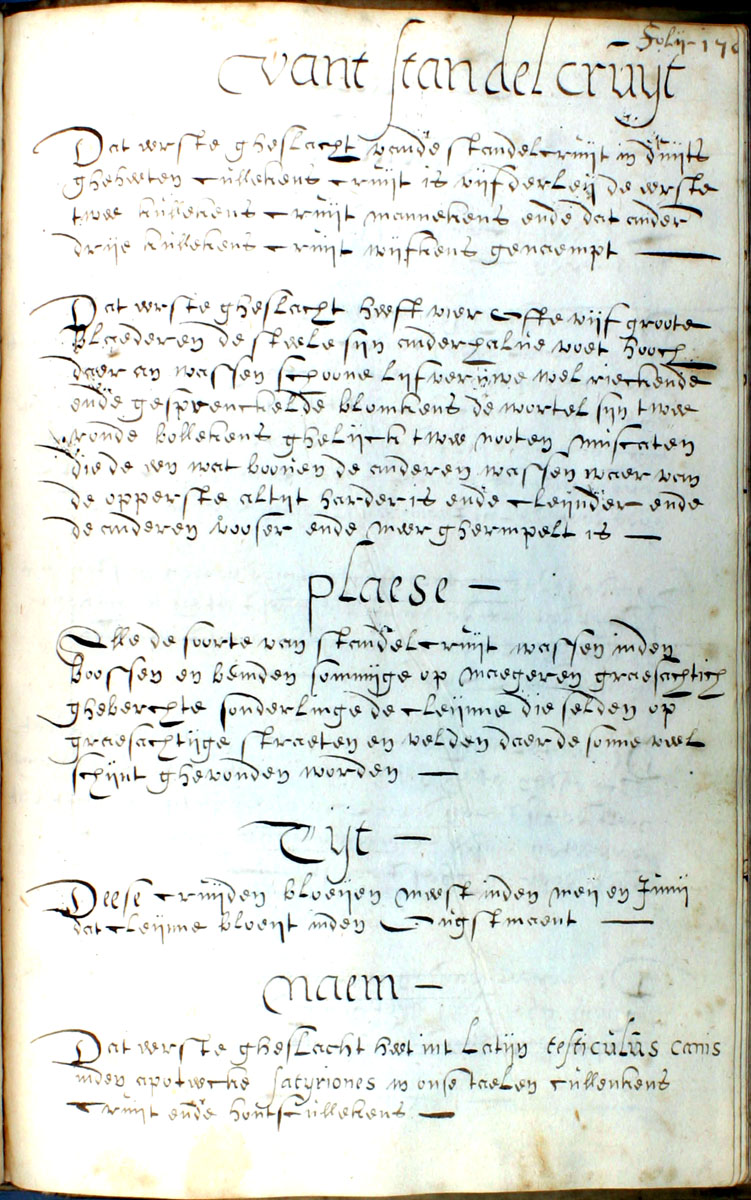 Folij 176
Vant standelcruijt
Dat eerste gheslacht vande standelcruijt in duijts
gheheeten cullekens cruijt is vijfderleij de eerste
twee kullekens cruijt mannekens ende dat ander
drije kullekens cruijt wijfkens genaempt —
Dat eerste gheslacht heeft vier ofte vijf groote
blaederen de steele sijn anderhalve voet hooch
daer an wassen schoone lijfveruwe wel rieckende
ende gesprenckelde blomkens de wortel sijn twee
ronde bollekens ghelijck twee nooten muscaten
die de een wat booven de anderen wassen waer van
de opperste altijt harder is ende cleijnder ende
de anderen vooser ende meer ghermpelt is —
plaese —
Alle de soorte van standelcruijt wassen inden
bossen en bemden sommijge op maegeren graesachtich
gheberchte sonderlinge de cleijnne die selden op
graesachtijge straeten en velden daer de sonne veel
schijnt ghevonden worden —
Tijt —
Deese cruijden bloeijen meest inden meij en Junij
dat cleijnne bloeijt inden Ougstmaent —
Naem —
Dat eerste gheslacht heet int Latijn testiculus canis
inden apoteecke satyriones in onse taelen cullenkens
Cruijt ende hontscullekens —